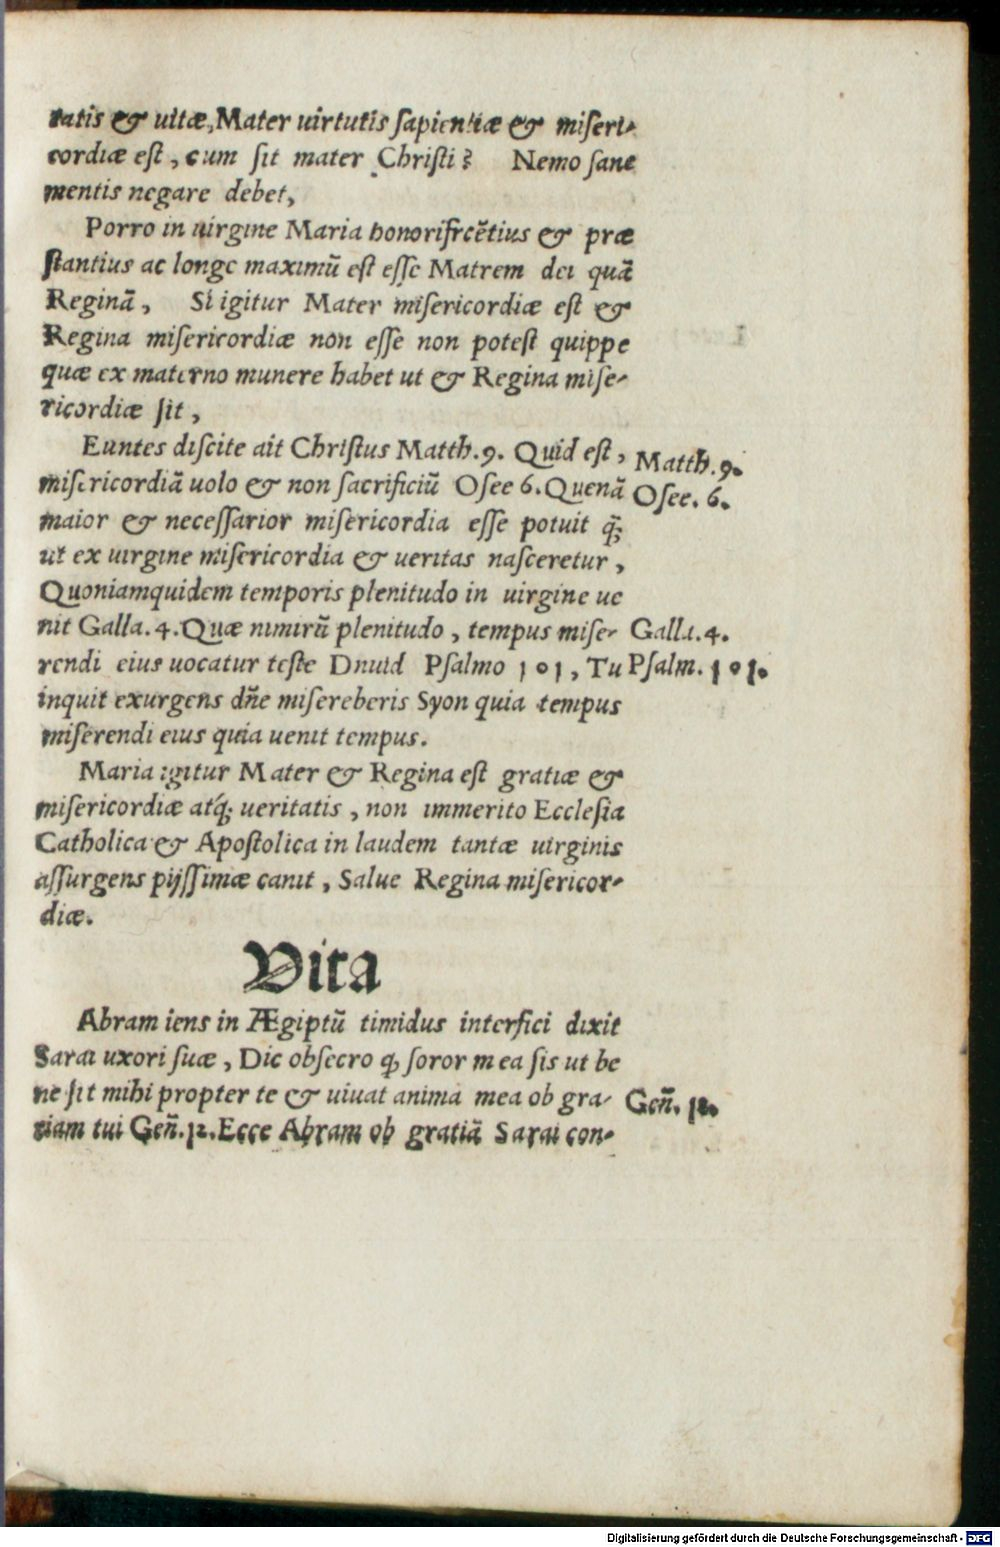 tatis & uitæ, Mater uirtutis sapientiæ & miseri-
cordiæ est, cum sit mater Christi? Nemo sane
mentis negare debet,
Porro in uirgine Maria honorificẽtius & præ
stantius ac longe maximũ est esse Matrem dei quã
Reginã, Si igitur Mater misericordiæ est &
Regina misericordiæ non esse non potest quippe
quæ ex materno munere habet ut & Regina mise-
ricordiæ sit,
Euntes discite ait Christus Matth. 9. Quid est, Matth. 9.
misericordiã uolo & non sacrificiũ Osee 6. Quenã Osee. 6.
maior & necessarior misericordia esse potuit q̃;
ut ex uirgine misericordia & ueritas nasceretur,
Quoniamquidem temporis plenitudo in uirgine ue
nit Galla. 4. Quæ nimirũ plenitudo, tempus mise- Galla. 4.
rendi eius uocatur teste Dauid Psalmo 101, Tu Psalm. 101.
inquit exurgens dñe misereberis Syon quia tempus
miserendi eius quia uenit tempus.
Maria igitur Mater & Regina est gratiæ &
misericordiæ atq́; ueritatis, non immerito Ecclesia
Catholica & Apostolica in laudem tantæ uirginis
assurgens pijssimæ canit, Salue Regina misericor-
diæ.
Vita
Abram iens in Ægiptũ timidus interfici dixit
Sarai uxori suæ, Dic obsecro ꝙ soror mea sis ut be
ne sit mihi propter te & uiuat anima mea ob gra- Geñ. 12.
tiam tui Geñ. 12. Ecce Abram ob gratiã Sarai con-
Digitalisierung gefördert durch die Deutsche Forschungsgemeinschaft - DFG